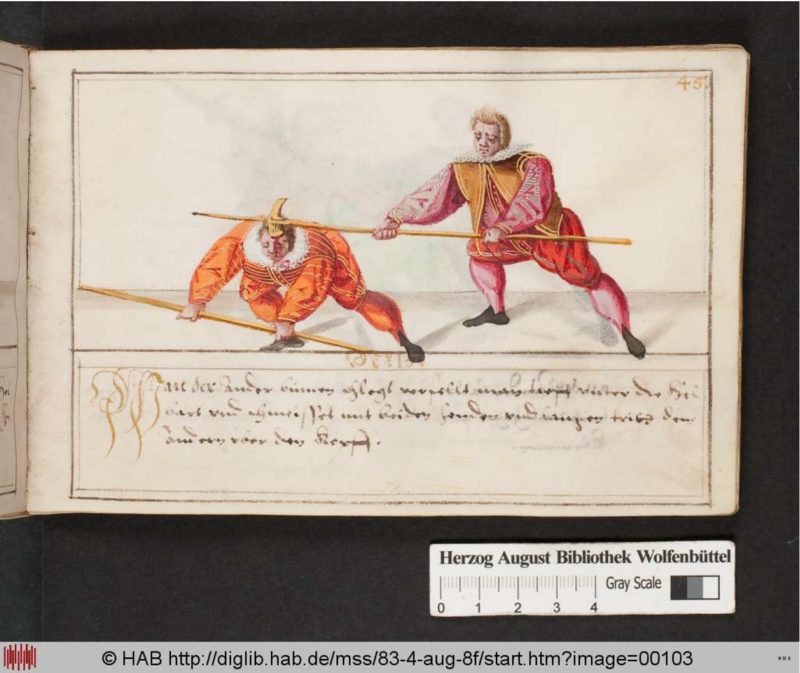 45
Wan der ander binnen schlegt verfellt man tieff unter die
bart vnd schmeisset mit beiden henden vnd langen dem
andern vber den Kopff.
Herzog August Bibliothek Wolfenbüttel
Gray Scale
0 1 2 3 4
© HAB http://diglib.hab.de/mss/83-4-aug-8f/start.htm?image=00103